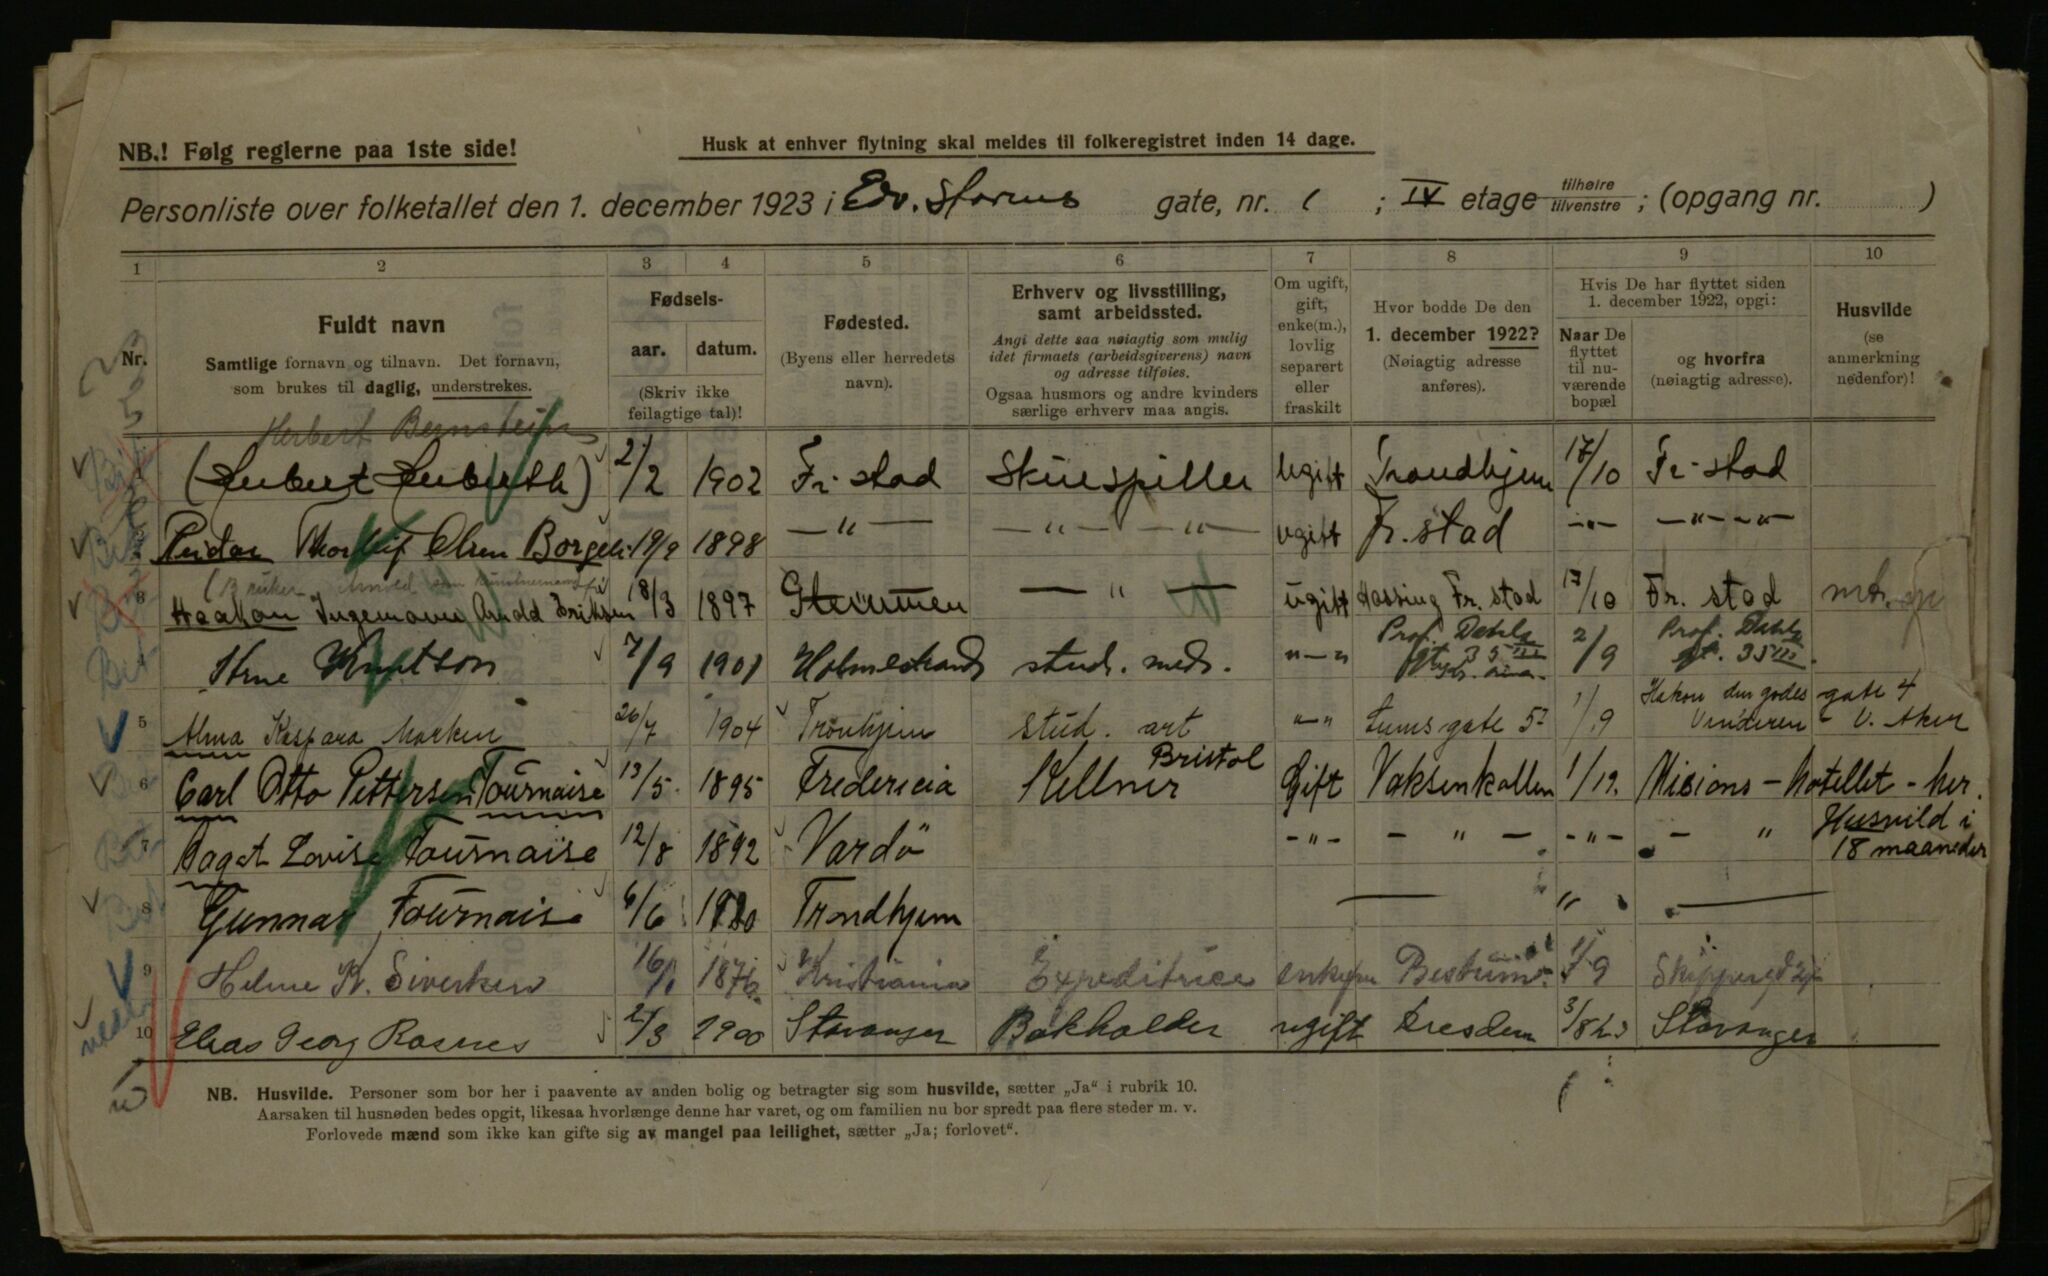 NB.! Følg reglerne paa 1ste side!
Husk at enhver flytning skal meldes til folkeregistret inden 14 dage.
Personliste over folketallet den 1. december 1923 i Edv. Storms gate, nr. 1 ; IV etage tilhøire tilvenstre ; (opgang nr. )
1 2 3 4 5 6 7 8 9 10
Nr.
Fuldt navn
Samtlige fornavn og tilnavn. Det fornavn,
som brukes til daglig, understrekes.
Fødsels-
aar. datum.
(Skriv ikke
feilagtige tal)!
Fødested.
(Byens eller herredets
navn).
Erhverv og livsstilling,
samt arbeidssted.
Angi dette saa nøiagtig som mulig
idet firmaets (arbeidsgiverens) navn
og adresse tilføies.
Ogsaa husmors og andre kvinders
særlige erhverv maa angis.
Om ugift,
gift,
enke(m.),
lovlig
separert
eller
fraskilt
Hvor bodde De den
1. december 1922?
(Nøiagtig adresse
anføres).
Hvis De har flyttet siden
1. december 1922, opgi:
Naar De
flyttet
til nu-
værende
bopæl
og hvorfra
(nøiagtig adresse).
Husvilde
(se
anmerkning
nedenfor)!
Herbert Bernstein
2/2 1902 Fr. stad Skuespiller Ugift Trondhjem 17/10 Fr. stad
Reidar Thorleif Olsen Borgen 19/9 1898 — " — — " — — " — ugift Fr. stad — " — — " — " —
3 Haakon Ingemann Arnold Eriksen 18/3 1897 — " — ugift Fr. stad 17/10 Fr. stad
4 Arne Knutson 7/9 1901 Holmestrand stud. med. " — " Prof. Dahls gt. 35 III 2/9 Prof. Dahls gt. 35 III
5 Alma Kaspara 26/7 1904 Trondhjem stud. art " — " 1/9 Hakon den godes gate 4
Vinderen V. Aker
6 Carl Otto Pettersen Tournaise 13/5 1895 Fredericia Kellner Bristol Gift Voksenkollen 1/12. Misions-hotellet - her.
7 Dagot Lovise Tournaise 12/8 1892 Vardö - " - - " - - " - - " Husvild i
18 maaneder
8 Gunnar Tournaise 6/6 1920 Trondhjem — " —
9 K. Siverksen 16/1 1876 Kristiania Expeditrice 9
10 Georg Rosnes 2/3 1900 Stavanger Bokholder ugift Dresden 3/8 23 Stavanger
NB. Husvilde. Personer som bor her i paavente av anden bolig og betragter sig som husvilde, sætter „Ja“ i rubrik 10.
Aarsaken til husnøden bedes opgit, likesaa hvorlænge denne har varet, og om familien nu bor spredt paa flere steder m. v.
Forlovede mænd som ikke kan gifte sig av mangel paa leilighet, sætter „Ja; forlovet“.